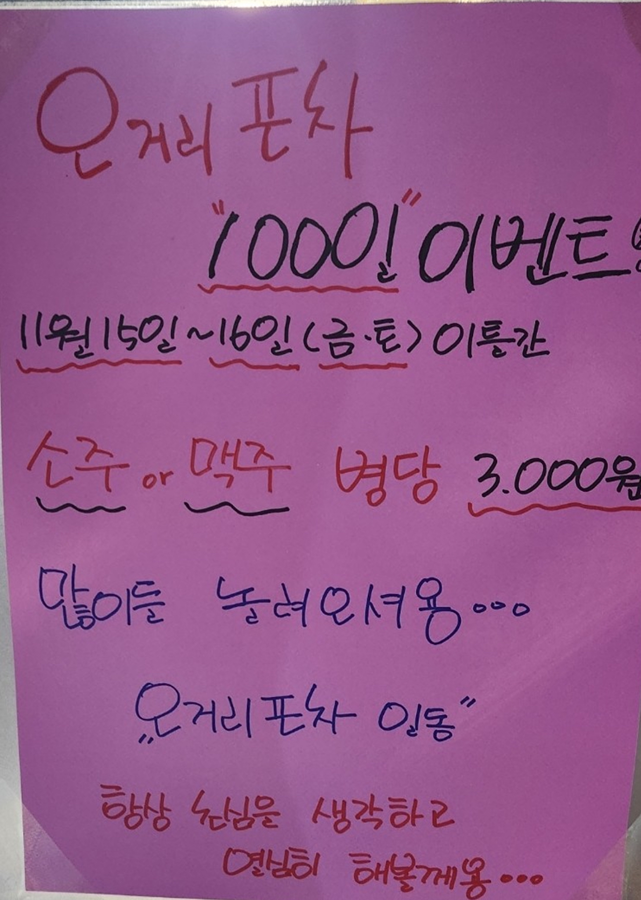 오거리 포차
"100일" 이벤트
11월 15일~16일 (금·토) 이틀간
소주 or 맥주 병당 3.000원
많이들 놀려오셔용...
"오거리포차 일동"
항상 초심을 생각하고
열심히 해볼께용...